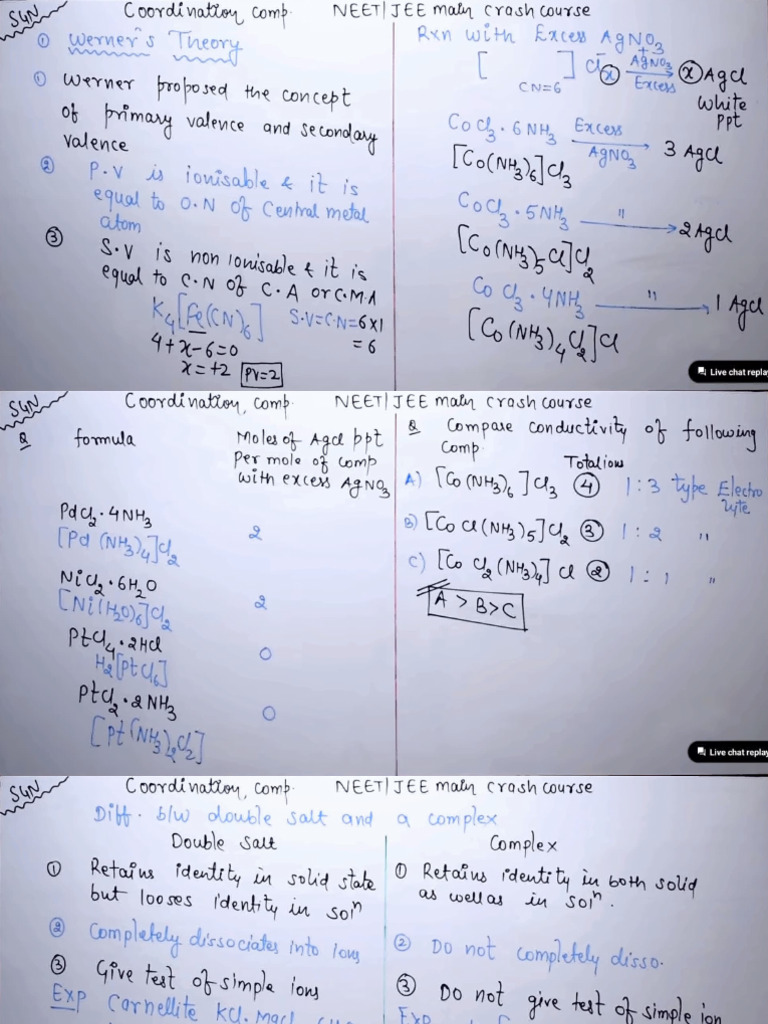 S4N
Coordination comp. NEET/JEE main crash course
① Werner's Theory
① Werner proposed the concept
of primary valence and secondary
valence
② P.V is ionisable & it is
equal to O.N of Central metal
atom
③ S.V is non ionisable & it is
equal to C.N of C.A or C.M.A
K4[Fe(CN)6] S.V=C.N=6x1
= 6
4+x-6=0
x=+2 PV=2
Rxn with Excess AgNO3
[ ] Cl x AgNO3 x AgCl
CN=6 Excess white
ppt
CoCl3·6NH3 Excess AgNO3 3 AgCl
[Co(NH3)6]Cl3
CoCl3·5NH3 " 2AgCl
[Co(NH3)5Cl]Cl2
CoCl3·4NH3 " 1 AgCl
[Co(NH3)4Cl2]Cl
Live chat replay
S4N
Coordination, comp. NEET/JEE main crash course
Q formula Moles of AgCl ppt
per mole of comp
with excess AgNO3
PdCl2·4NH3
[Pd(NH3)4]Cl2 2
NiCl2·6H2O
[Ni(H2O)6]Cl2 2
PtCl4·2HCl
H2[PtCl6] 0
PtCl2·2NH3
[Pt(NH3)2Cl2] 0
Q Compare conductivity of following
Comp. Total ions
A) [Co(NH3)6]Cl3 ④ 1:3 type Electro
lyte
B) [CoCl(NH3)5]Cl2 ③ 1:2 "
C) [CoCl2(NH3)4]Cl ② 1:1 "
A > B > C
Live chat replay
S4N
Coordination, comp. NEET/JEE main crash course
Diff. b/w double salt and a complex
Double Salt
① Retains identity in solid state
but looses identity in soln
② Completely dissociates into ions
③ Give test of simple ions
Exp Carnellite KCl.MgCl
Complex
① Retains identity in both solid
as well as in soln.
② Do not completely disso.
③ Do not give test of simple ion
Exp